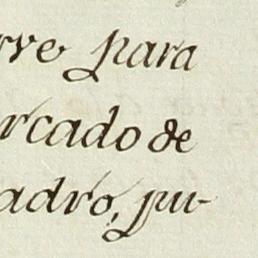 rve para
rcado de
adro, pu-